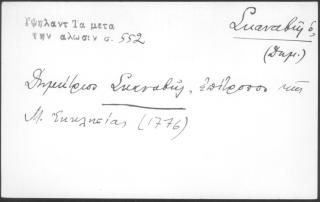 Ὑψηλαντ Τα μετα
την αλωσιν σ. 552
Σκαναβῆς ὁ,
(Δημ.)
Δημήτριος Σκαναβῆς, ἐπίτροπος τῆς
Μ. Ἐκκλησίας (1776)